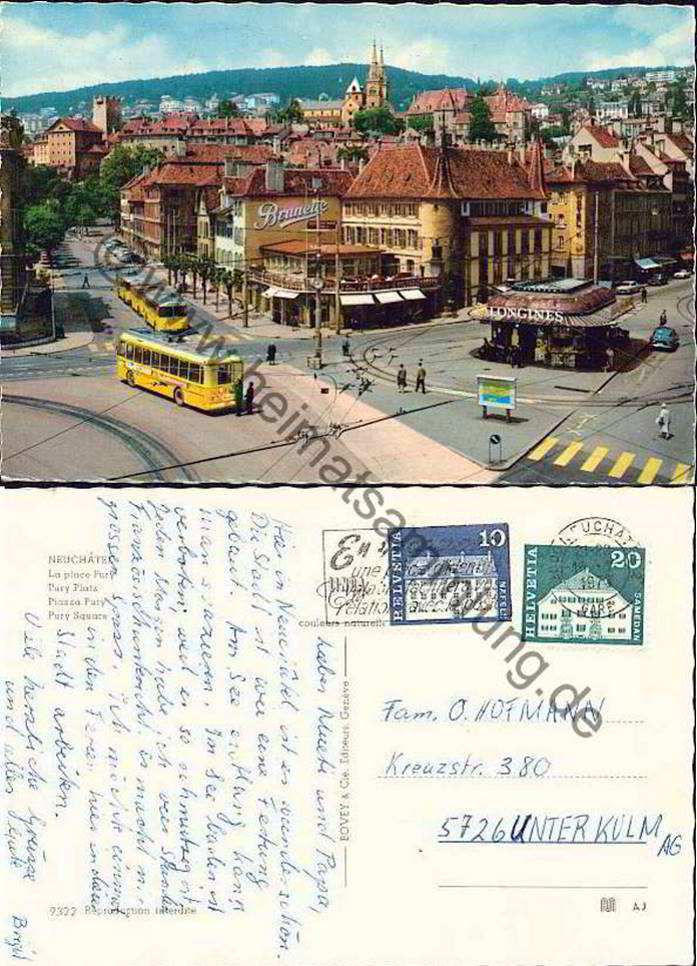 Brunette
LONGINES
© www.heimatsammlung.de
NEUCHÂTEL
La place Pury
Pury Platz
Piazza Pury
Pury Square
couleurs naturelles
HELVETIA
10
HELVETIA
20
SAMEDAN
NEUCHÂT
Liebe Mueti und Papa,
Hier in Neuchâtel ist es wunderschön.
Die Stadt ist wie eine Festung
gebaut. Am See entlang kann
man spazieren. Im See baden ist
verboten, weil es so schmutzig ist
Jeden Morgen habe ich vier Stunden
Französischunterricht, es macht mir
grossen Spass. Ich möchte einmal
in den Ferien hier in dieser
Stadt arbeiten.
Viele herzliche Grüsse
und alles Gute
BOVEY & Cie, Editeurs, Genève
Fam. O. HOFMANN
Kreuzstr. 380
5726 UNTERKULM
AG
9322 Reproduction interdite
AJ